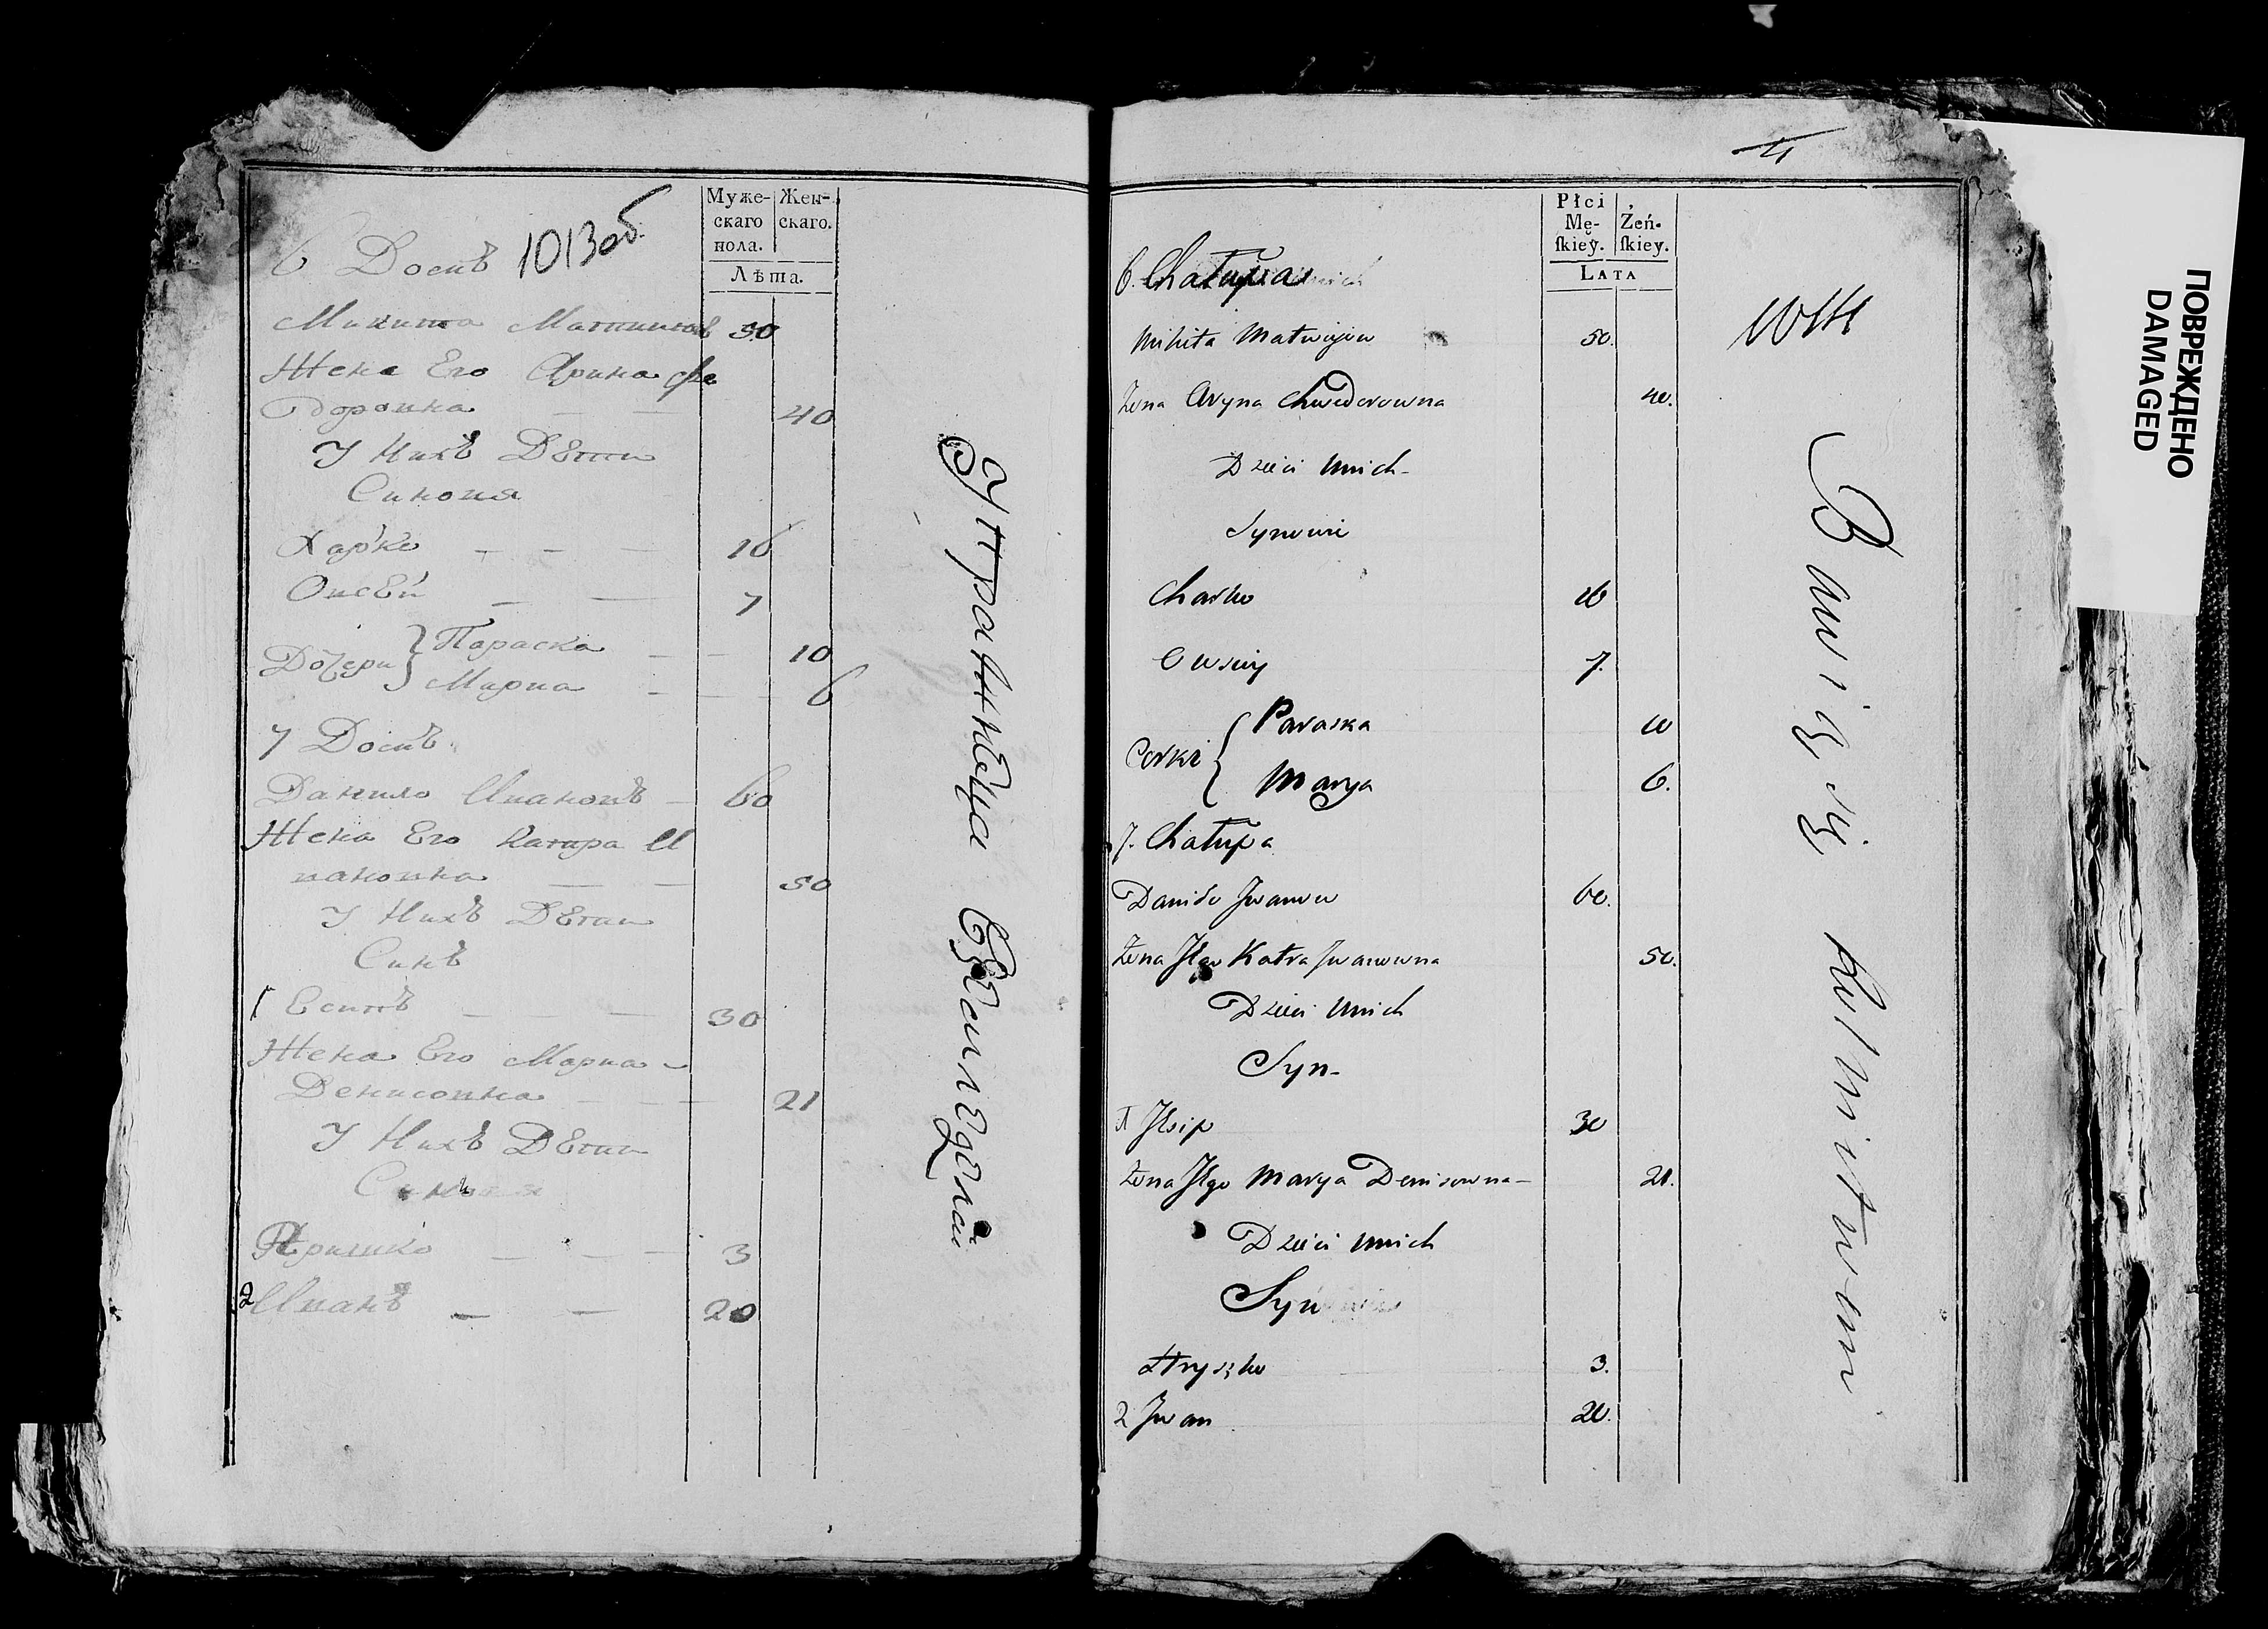 1013 об.
Муже-
скаго
пола.
Жен-
скаго.
Лѣта.
6 Домъ
Микита Матвиювъ 50
Жена Его Арина Фе
доровна 40
У Нихъ Дети
Синовя
Харко 16
Овсей 7
Дочери Параска 10
Мариа 6
7 Домъ
Данило Ивановъ 60
Жена Его Катра И
вановна 50
У Нихъ Дети
Синъ
1 Есипъ 30
Жена Его Мариа
Денисовна 21
У Нихъ Дети
Гришко 3
2 Иванъ 20
4
1014
Płci
Mę-
ſkiey.
Żeń-
ſkiey.
Lata
6. Chałupa
Mikita Matwiyow 50.
Zona Aryna Chwedorowna 40.
Dzieci unich
Synowie
Charko 16
Owsiey 7.
Corki Paraska 10
Marya 6.
7. Chałupa
Daniło Jwanow 60.
Zona Jego Katra Jwanowna 50.
Dzieci unich
Syn
1 Jesip 30
Zona Jego Marya Denisowna 21.
Dzieci unich
Syn
Hryszko 3.
2 Jwan 20.
ПОВРЕЖДЕНО
DAMAGED